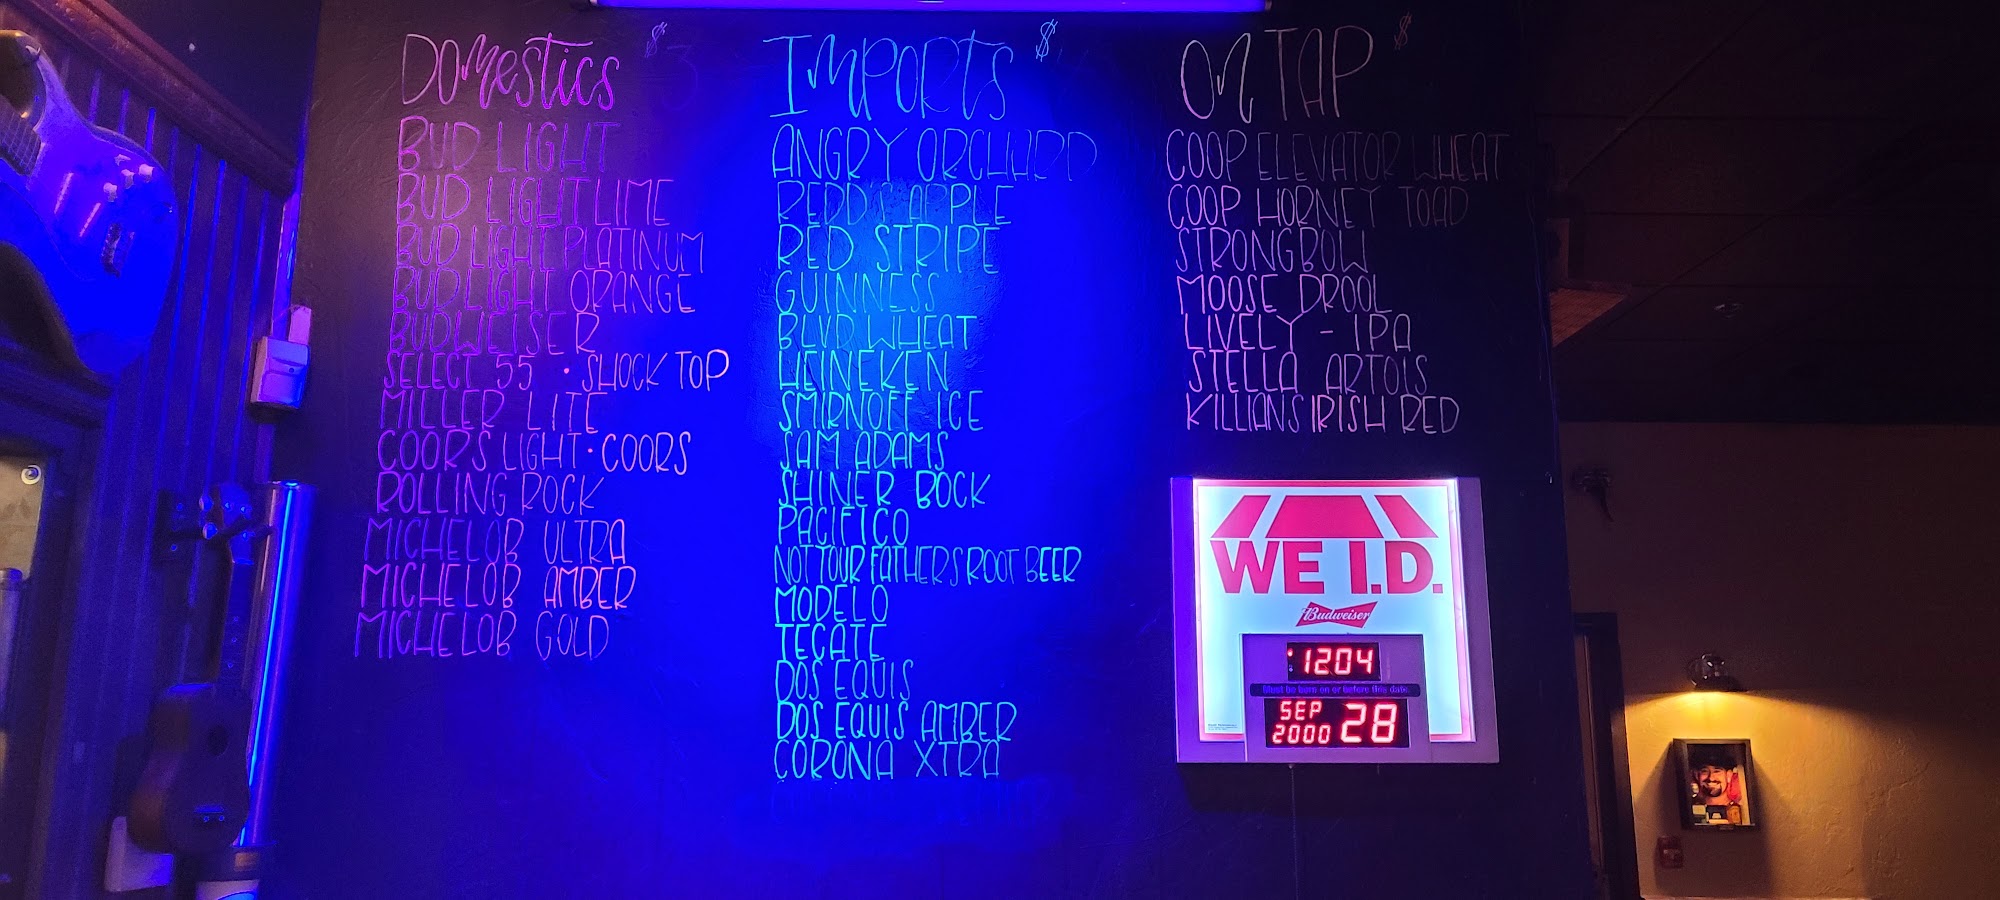 Domestics $
BUD LIGHT
BUD LIGHT LIME
BUD LIGHT PLATINUM
BUD LIGHT ORANGE
BUDWEISER
SELECT 55 • SHOCK TOP
MILLER LITE
COORS LIGHT • COORS
ROLLING ROCK
MICHELOB ULTRA
MICHELOB AMBER
MICHELOB GOLD
Imports $
ANGRY ORCHARD
REDD'S APPLE
RED STRIPE
GUINNESS
BLVD WHEAT
HEINEKEN
SMIRNOFF ICE
SAM ADAMS
SHINER BOCK
PACIFICO
NOT YOUR FATHERS ROOT BEER
MODELO
TECATE
DOS EQUIS
DOS EQUIS AMBER
CORONA XTRA
ON TAP $
COOP ELEVATOR WHEAT
COOP HORNEY TOAD
STRONGBOW
MOOSE DROOL
LIVELY - IPA
STELLA ARTOIS
KILLIANS IRISH RED
WE I.D.
Budweiser
12:04
Must be born on or before this date.
SEP 28
2000